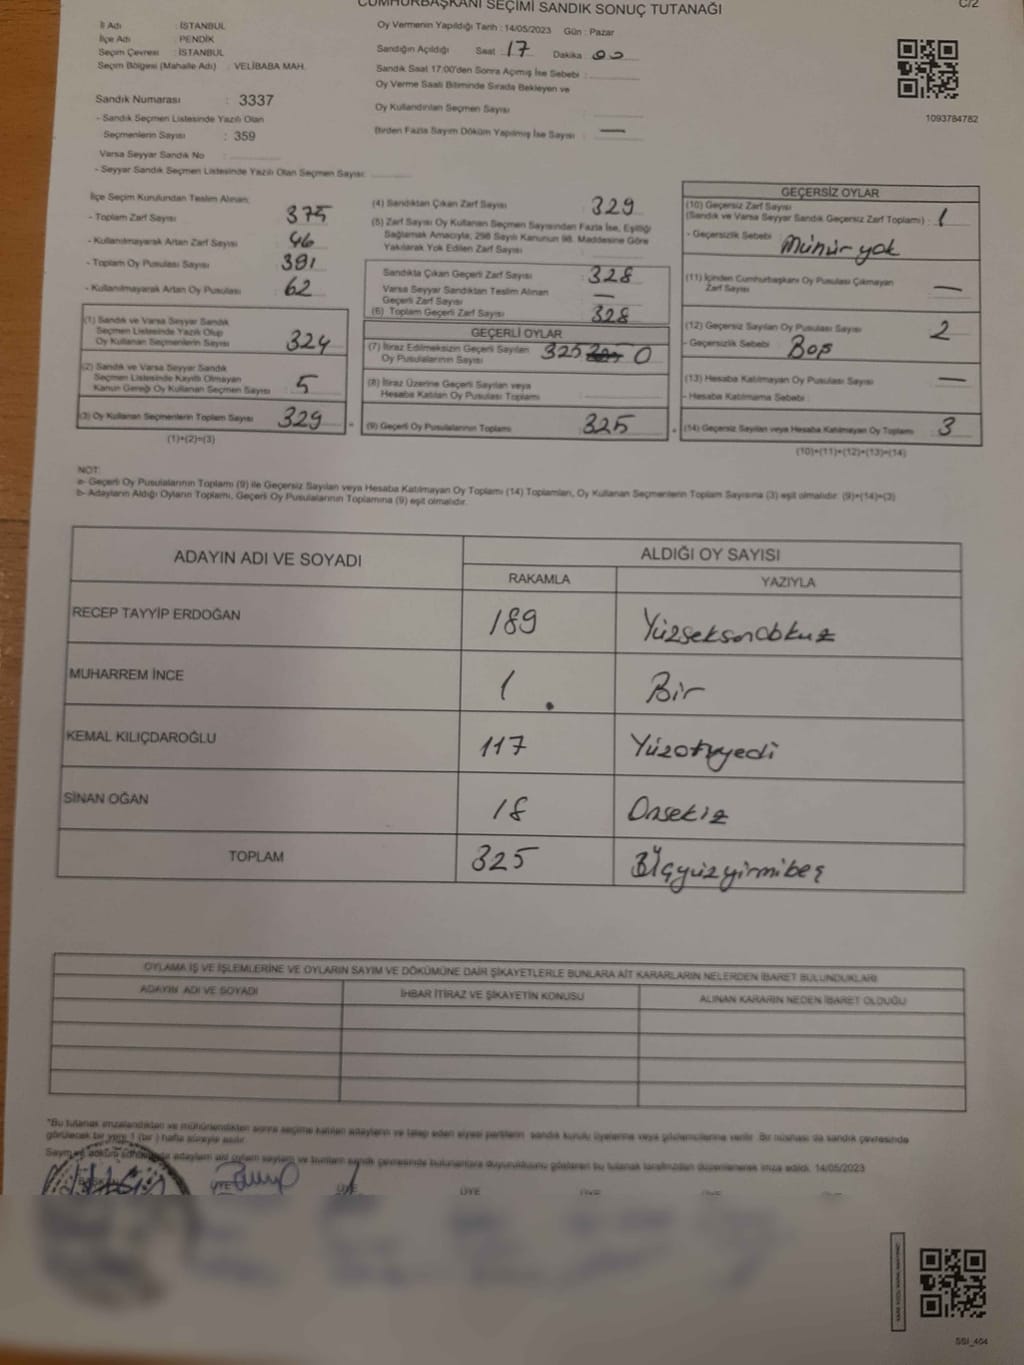 CUMHURBAŞKANI SEÇİMİ SANDIK SONUÇ TUTANAĞI
C/2
İl Adı : İSTANBUL
İlçe Adı : PENDİK
Seçim Çevresi : İSTANBUL
Seçim Bölgesi (Mahalle Adı) : VELİBABA MAH.
Sandık Numarası : 3337
- Sandık Seçmen Listesinde Yazılı Olan
Seçmenlerin Sayısı : 359
Varsa Seyyar Sandık No :
- Seyyar Sandık Seçmen Listesinde Yazılı Olan Seçmen Sayısı:
Oy Vermenin Yapıldığı Tarih : 14/05/2023 Gün : Pazar
Sandığın Açıldığı Saat : 17 Dakika : 00
Sandık Saat 17:00'den Sonra Açılmış İse Sebebi :
Oy Verme Saati Bitiminde Sırada Bekleyen ve
Oy Kullandırılan Seçmen Sayısı :
Birden Fazla Sayım Döküm Yapılmış İse Sayısı : —
1093784782
İlçe Seçim Kurulundan Teslim Alınan;
- Toplam Zarf Sayısı : 375
- Kullanılmayarak Artan Zarf Sayısı : 46
- Toplam Oy Pusulası Sayısı : 391
- Kullanılmayarak Artan Oy Pusulası : 62
(1) Sandık ve Varsa Seyyar Sandık
Seçmen Listesinde Yazılı Olup
Oy Kullanan Seçmenlerin Sayısı : 324
(2) Sandık ve Varsa Seyyar Sandık
Seçmen Listesinde Kayıtlı Olmayan
Kanun Gereği Oy Kullanan Seçmen Sayısı : 5
(3) Oy Kullanan Seçmenlerin Toplam Sayısı : 329
(1)+(2)=(3)
(4) Sandıktan Çıkan Zarf Sayısı : 329
(5) Zarf Sayısı Oy Kullanan Seçmen Sayısından Fazla İse, Eşitliği
Sağlamak Amacıyla, 298 Sayılı Kanunun 98. Maddesine Göre
Yakılarak Yok Edilen Zarf Sayısı :
Sandıkta Çıkan Geçerli Zarf Sayısı : 328
Varsa Seyyar Sandıktan Teslim Alınan
Geçerli Zarf Sayısı : —
(6) Toplam Geçerli Zarf Sayısı : 328
GEÇERLİ OYLAR
(7) İtiraz Edilmeksizin Geçerli Sayılan
Oy Pusulalarının Sayısı : 325 0
(8) İtiraz Üzerine Geçerli Sayılan veya
Hesaba Katılan Oy Pusulası Toplamı :
(9) Geçerli Oy Pusulalarının Toplamı : 325
GEÇERSİZ OYLAR
(10) Geçersiz Zarf Sayısı
(Sandık ve Varsa Seyyar Sandık Geçersiz Zarf Toplamı) : 1
- Geçersizlik Sebebi : Mühür yok
(11) İçinden Cumhurbaşkanı Oy Pusulası Çıkmayan
Zarf Sayısı : —
(12) Geçersiz Sayılan Oy Pusulası Sayısı : 2
- Geçersizlik Sebebi : Boş
(13) Hesaba Katılmayan Oy Pusulası Sayısı : —
- Hesaba Katılmama Sebebi :
(14) Geçersiz Sayılan veya Hesaba Katılmayan Oy Toplamı : 3
(10)+(11)+(12)+(13)=(14)
NOT:
a- Geçerli Oy Pusulalarının Toplamı (9) ile Geçersiz Sayılan veya Hesaba Katılmayan Oy Toplamı (14) Toplamları, Oy Kullanan Seçmenlerin Toplam Sayısına (3) eşit olmalıdır. (9)+(14)=(3)
b- Adayların Aldığı Oyların Toplamı, Geçerli Oy Pusulalarının Toplamına (9) eşit olmalıdır.
ADAYIN ADI VE SOYADI
ALDIĞI OY SAYISI
RAKAMLA YAZIYLA
RECEP TAYYİP ERDOĞAN 189 Yüzseksendokuz
MUHARREM İNCE 1 Bir
KEMAL KILIÇDAROĞLU 117 Yüzonyedi
SİNAN OĞAN 18 Onsekiz
TOPLAM 325 Üçyüzyirmibeş
OYLAMA İŞ VE İŞLEMLERİNE VE OYLARIN SAYIM VE DÖKÜMÜNE DAİR ŞİKAYETLERLE BUNLARA AİT KARARLARIN NELERDEN İBARET BULUNDUKLARI
ADAYIN ADI VE SOYADI İHBAR İTİRAZ VE ŞİKAYETİN KONUSU ALINAN KARARIN NEDEN İBARET OLDUĞU
*Bu tutanak imzalandıktan ve mühürlendikten sonra seçime katılan adayların ve talep eden siyasi partilerin sandık kurulu üyelerine veya gözlemcilerine verilir. Bir nüshası da sandık çevresinde
görülecek bir yere 1 (bir) hafta süreyle asılır.
14/05/2023
ÜYE ÜYE ÜYE
SSI_404